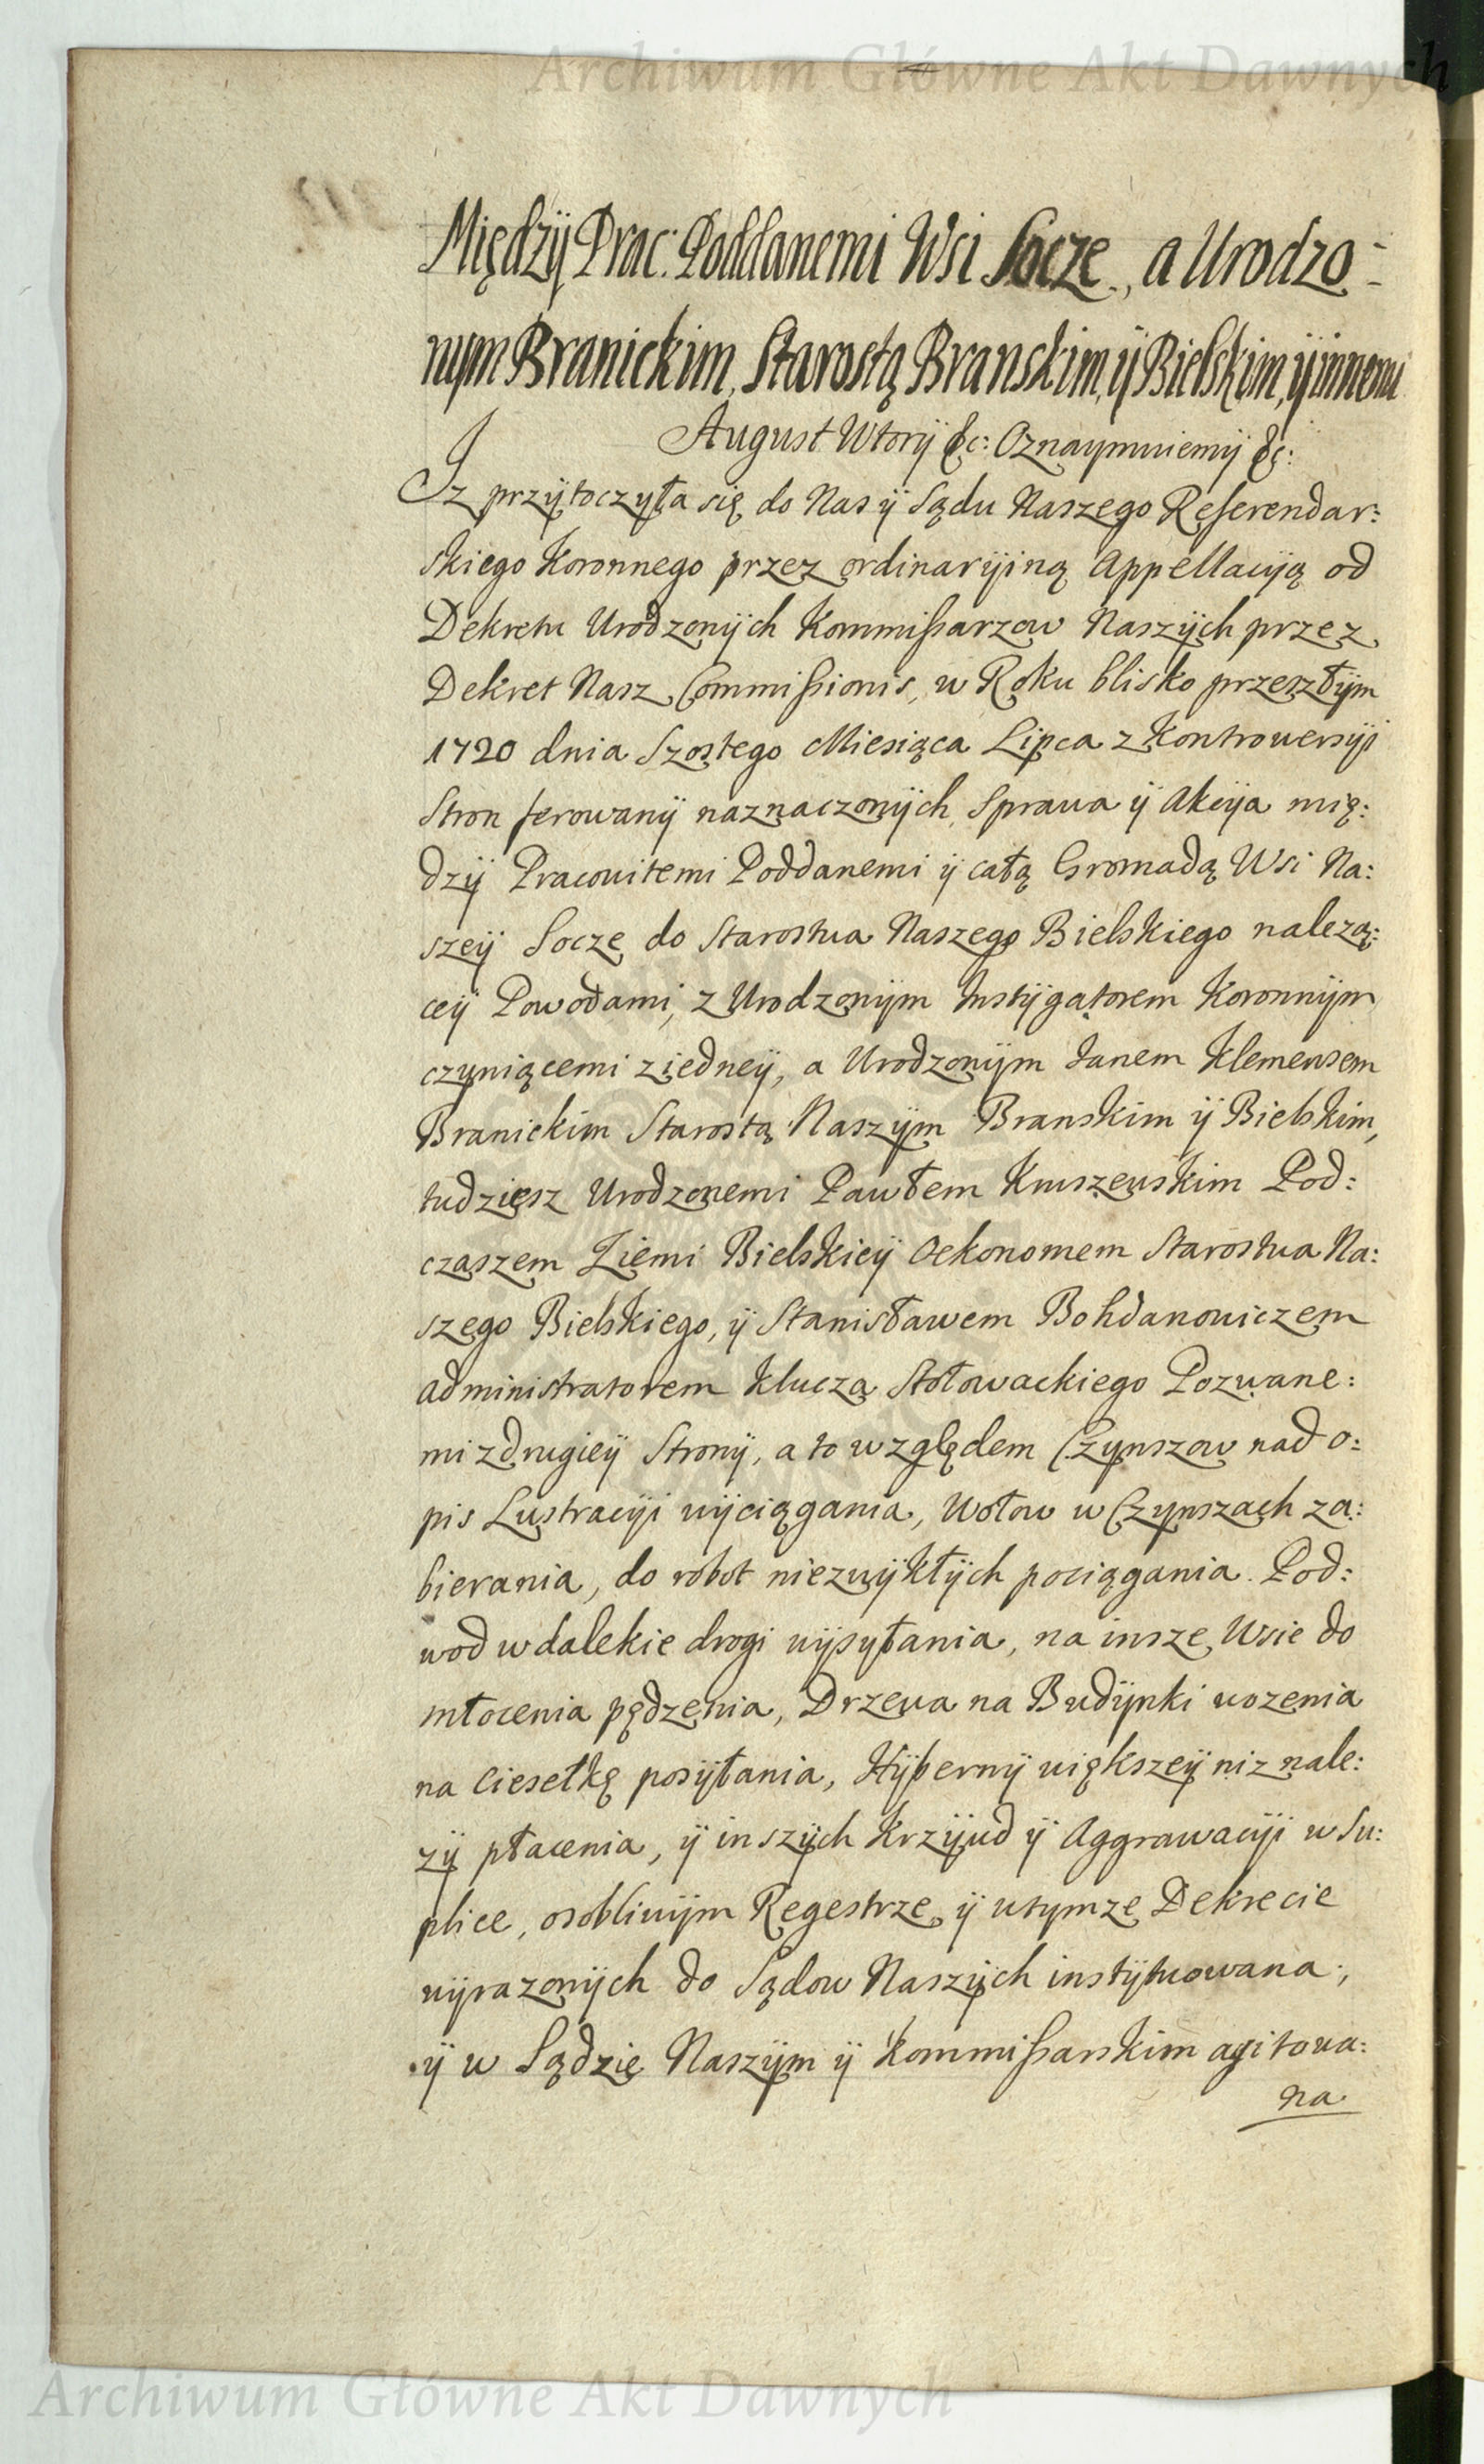 Archiwum Główne Akt Dawnych
Międzÿ Prac: Poddanemi Wsi Socze, a Urodzo-
nym Branickim, Starostą Branskim, ÿ Bielskim, ÿ innemi
August Wtorÿ &c: Oznaymuiemÿ &c:
Iz przÿtoczyła się do Nas ÿ Sądu Naszego Referendar:
skiego Koronnego przez ordinarÿiną Appellacÿą od
Dekretu Urodzonÿch Kommißarzow Naszÿch przez
Dekret Nasz Commißionis, w Roku blisko przeszłÿm
1720 dnia Szostego Miesiąca Lipca z Kontrowersÿi
Stron ferowanÿ naznaczonÿch, Sprawa ÿ Akcÿa mię:
dzÿ Pracowitemi Poddanemi ÿ całą Gromadą Wsi Na:
szeÿ Socze do Starostwa Naszego Bielskiego nalezą:
ceÿ Powodami, z Urodzonÿm Instÿgatorem Koronnÿm
czyniącemi z iedneÿ, a Urodzonÿm Janem Klemensem
Branickim Starostą Naszÿm Branskim ÿ Bielskim,
tudziesz Urodzonemi Pawłem Kruszewskim Pod:
czaszem Ziemi Bielskieÿ Oekonomem Starostwa Na:
szego Bielskiego, ÿ Stanisławem Bohdanowiczem
administratorem Klucza Stołowackiego Pozwane:
mi z drugieÿ Stronÿ, a to względem Czynszow nad o:
pis Lustracÿi wÿciągania, Wołow w Czynszach za:
bierania, do robot niezwÿkłÿch pociągania. Pod:
wod w dalekie drogi wÿsyłania, na insze Wsie do
młocenia pędzenia, Drzewa na Budÿnki wozenia
na Ciesełkę posÿłania, Hÿbernÿ większeÿ niz nale:
zÿ płacenia, ÿ inszÿch Krzÿwd ÿ Aggrawacÿi w Su:
plice, osobliwÿm Regestrze ÿ w tymze Dekrecie
wÿrazonÿch do Sądow Naszÿch instÿtuowana,
ÿ w Sądzie Naszÿm ÿ Kommißarskim agitowa:
na
Archiwum Główne Akt Dawnych